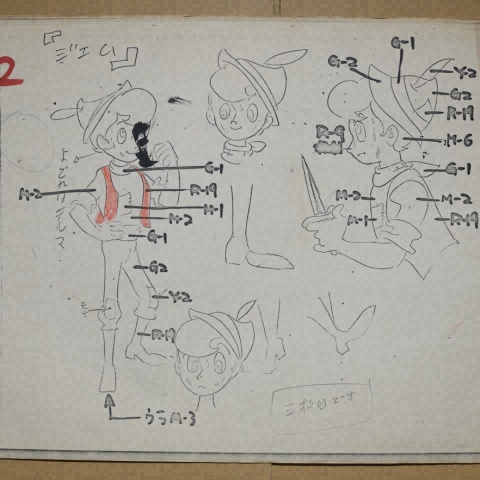 2
『ジェム』
G-1
G-2
Y-2
G2
R-19
R-9
M-6
G-1
G-1
M-2
R-19
M-2
M-2
H-1
R-19
M-2
G-1
G2
Y-2
R-19
ウラM-3
三枚目です